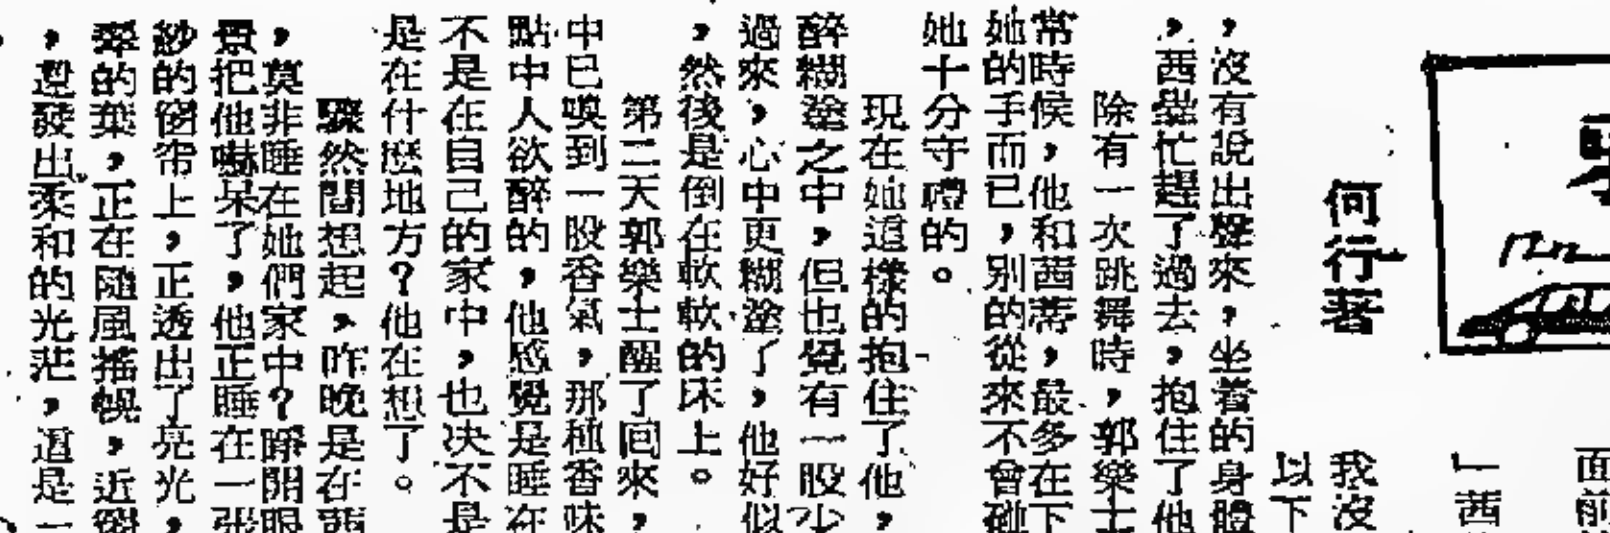 面前
」茜
何行著
我沒
以下
，沒有說出聲來，坐着的身體
，茜蒂忙趕了過去，抱住了他
除有一次跳舞時，郭樂士
常時侯，他和茜蒂，最多在下
她的手而已，別的從來不會碰
她十分守禮的。
現在她這樣的抱住了他，
醉糊塗之中，但也覺有一股少
過來，心中更糊塗了，他好似
，然後是倒在軟軟的床上。
第二天郭樂士醒了囘來，
中已嗅到一股香氣，那種香味
點中人欲醉的，他感覺是睡在
不是在自己的家中，也决不是
是在什麽地方？他在想了。
驟然間想起，昨晚是在茜
，莫非睡在她們家中？睜開眼
景把他嚇呆了，他正睡在一張
紗的窗帘上，正透出了亮光，
的葉，正在隨風搖幌，近窗
，還發出柔和的光茫，這是一